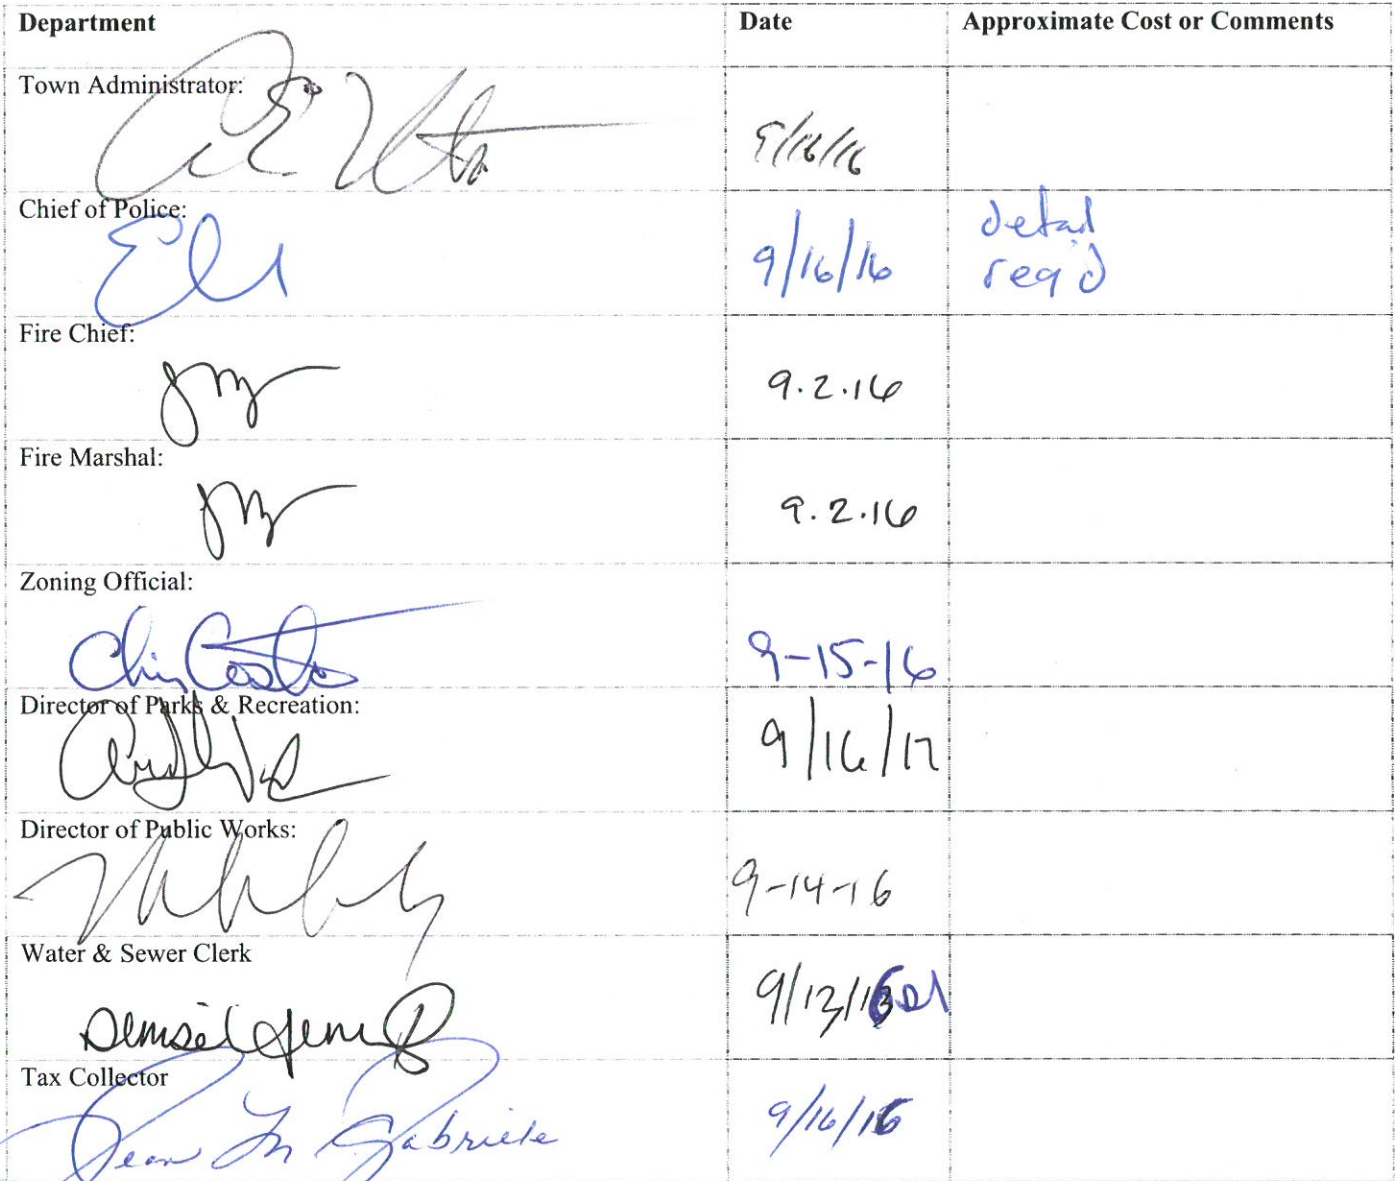 Department Date Approximate Cost or Comments
Town Administrator:
9/16/16
Chief of Police:
9/16/16 detail
req'd
Fire Chief:
9.2.16
Fire Marshal:
9.2.16
Zoning Official:
Chris Costa
9-15-16
Director of Parks & Recreation:
9/16/17
Director of Public Works:
9-14-16
Water & Sewer Clerk
9/13/16
Tax Collector
Jean M Gabriele
9/16/16